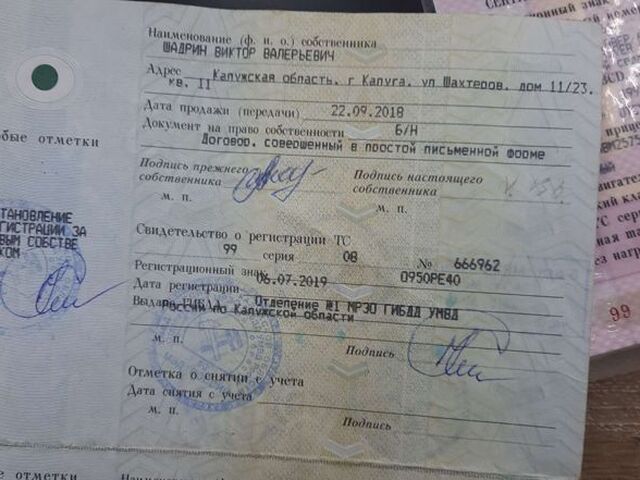 Наименование (ф. и. о.) собственника
ШАДРИН ВИКТОР ВАЛЕРЬЕВИЧ
Адрес Калужская область, г Калуга, ул Шахтеров, дом 11/23,
кв. 11
Дата продажи (передачи) 22.09.2018
Документ на право собственности Б/Н
Договор, совершенный в простой письменной форме
Подпись прежнего собственника
Подпись настоящего собственника
м. п. м. п.
Свидетельство о регистрации ТС
99 серия 08 № 666962
Регистрационный знак О950РЕ40
Дата регистрации 06.07.2019
Выдано ГИБДД Отделение №1 МРЭО ГИБДД УМВД
России по Калужской области
м. п. Подпись
Отметка о снятии с учета
Дата снятия с учета
м. п.
Подпись
Наименование (ф. и. о.) собственника
обые отметки
ТАНОВЛЕНИЕ
ГИСТРАЦИИ ЗА
ВЫМ СОБСТВЕ
КОМ
е отметки
99